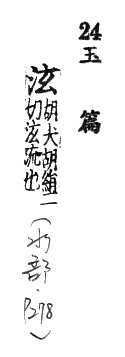 24玉篇
泫胡犬胡絹二
切泫流也
(水部·P278)